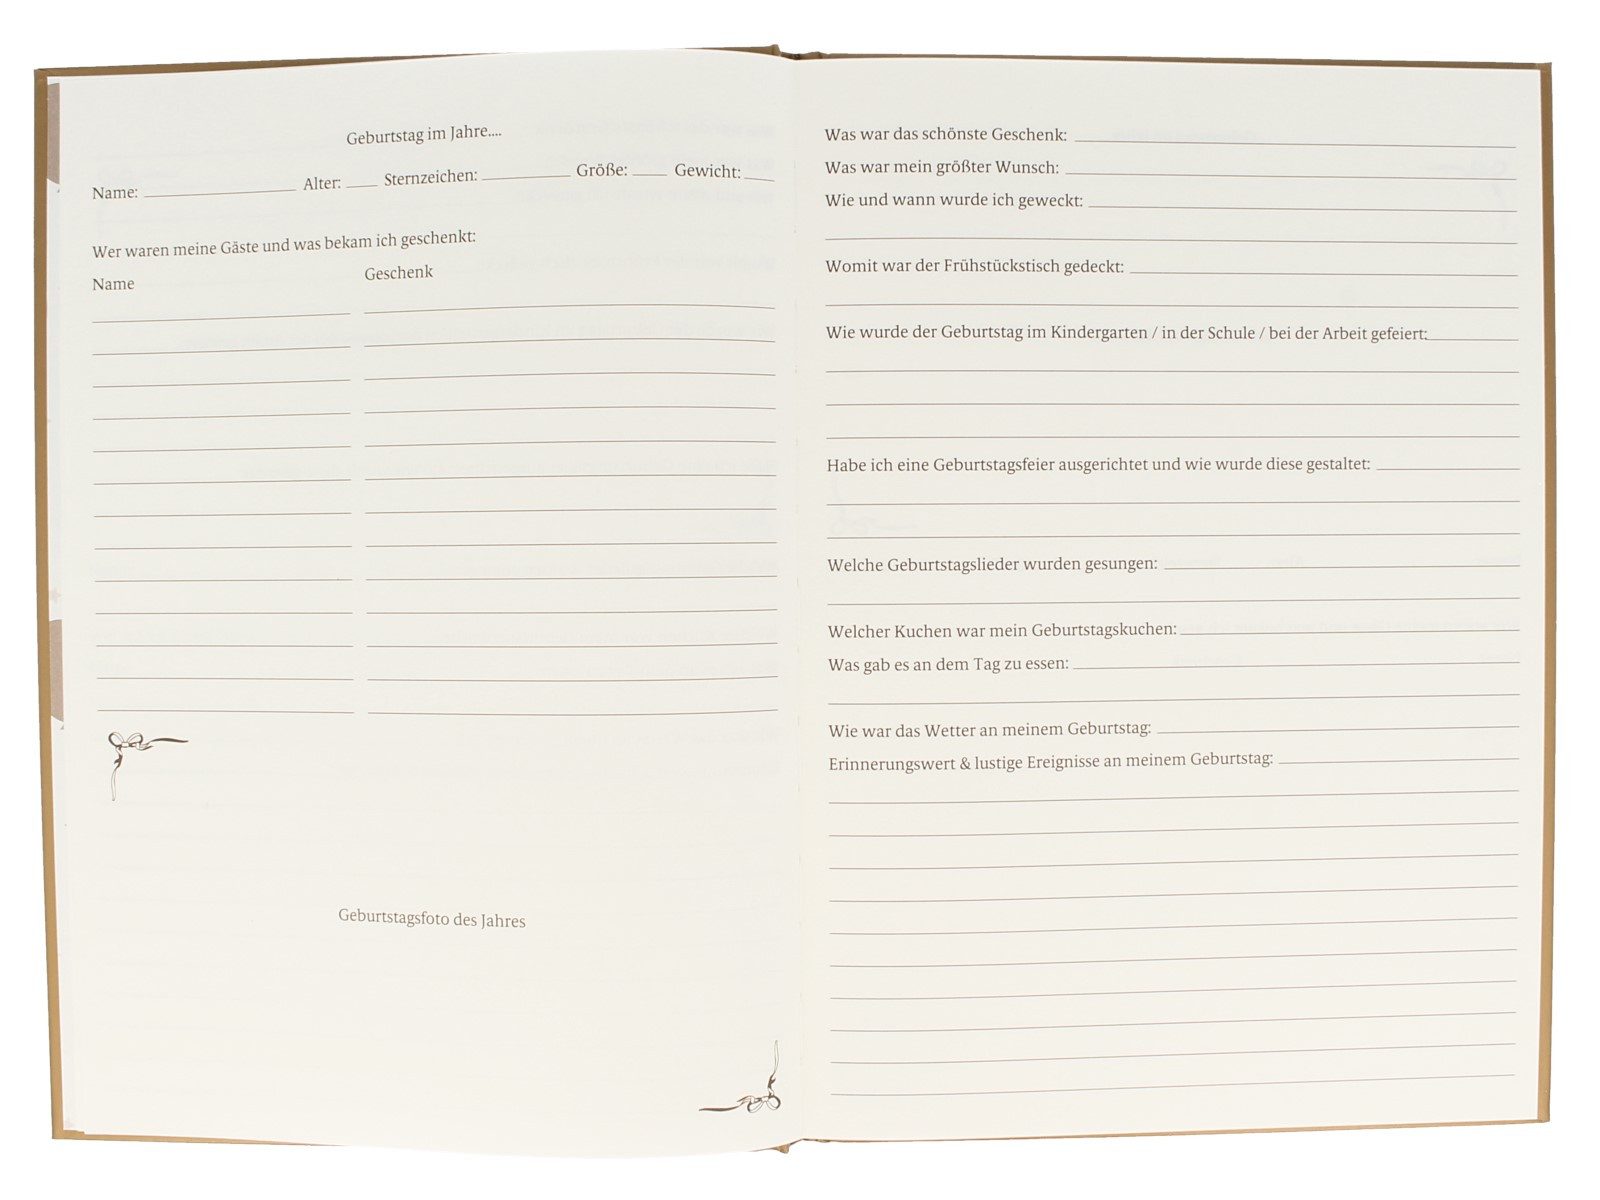 Geburtstag im Jahre....
Name: Alter: Sternzeichen: Größe: Gewicht:
Wer waren meine Gäste und was bekam ich geschenkt:
Name Geschenk
Geburtstagsfoto des Jahres
Was war das schönste Geschenk:
Was war mein größter Wunsch:
Wie und wann wurde ich geweckt:
Womit war der Frühstückstisch gedeckt:
Wie wurde der Geburtstag im Kindergarten / in der Schule / bei der Arbeit gefeiert:
Habe ich eine Geburtstagsfeier ausgerichtet und wie wurde diese gestaltet:
Welche Geburtstagslieder wurden gesungen:
Welcher Kuchen war mein Geburtstagskuchen:
Was gab es an dem Tag zu essen:
Wie war das Wetter an meinem Geburtstag:
Erinnerungswert & lustige Ereignisse an meinem Geburtstag: